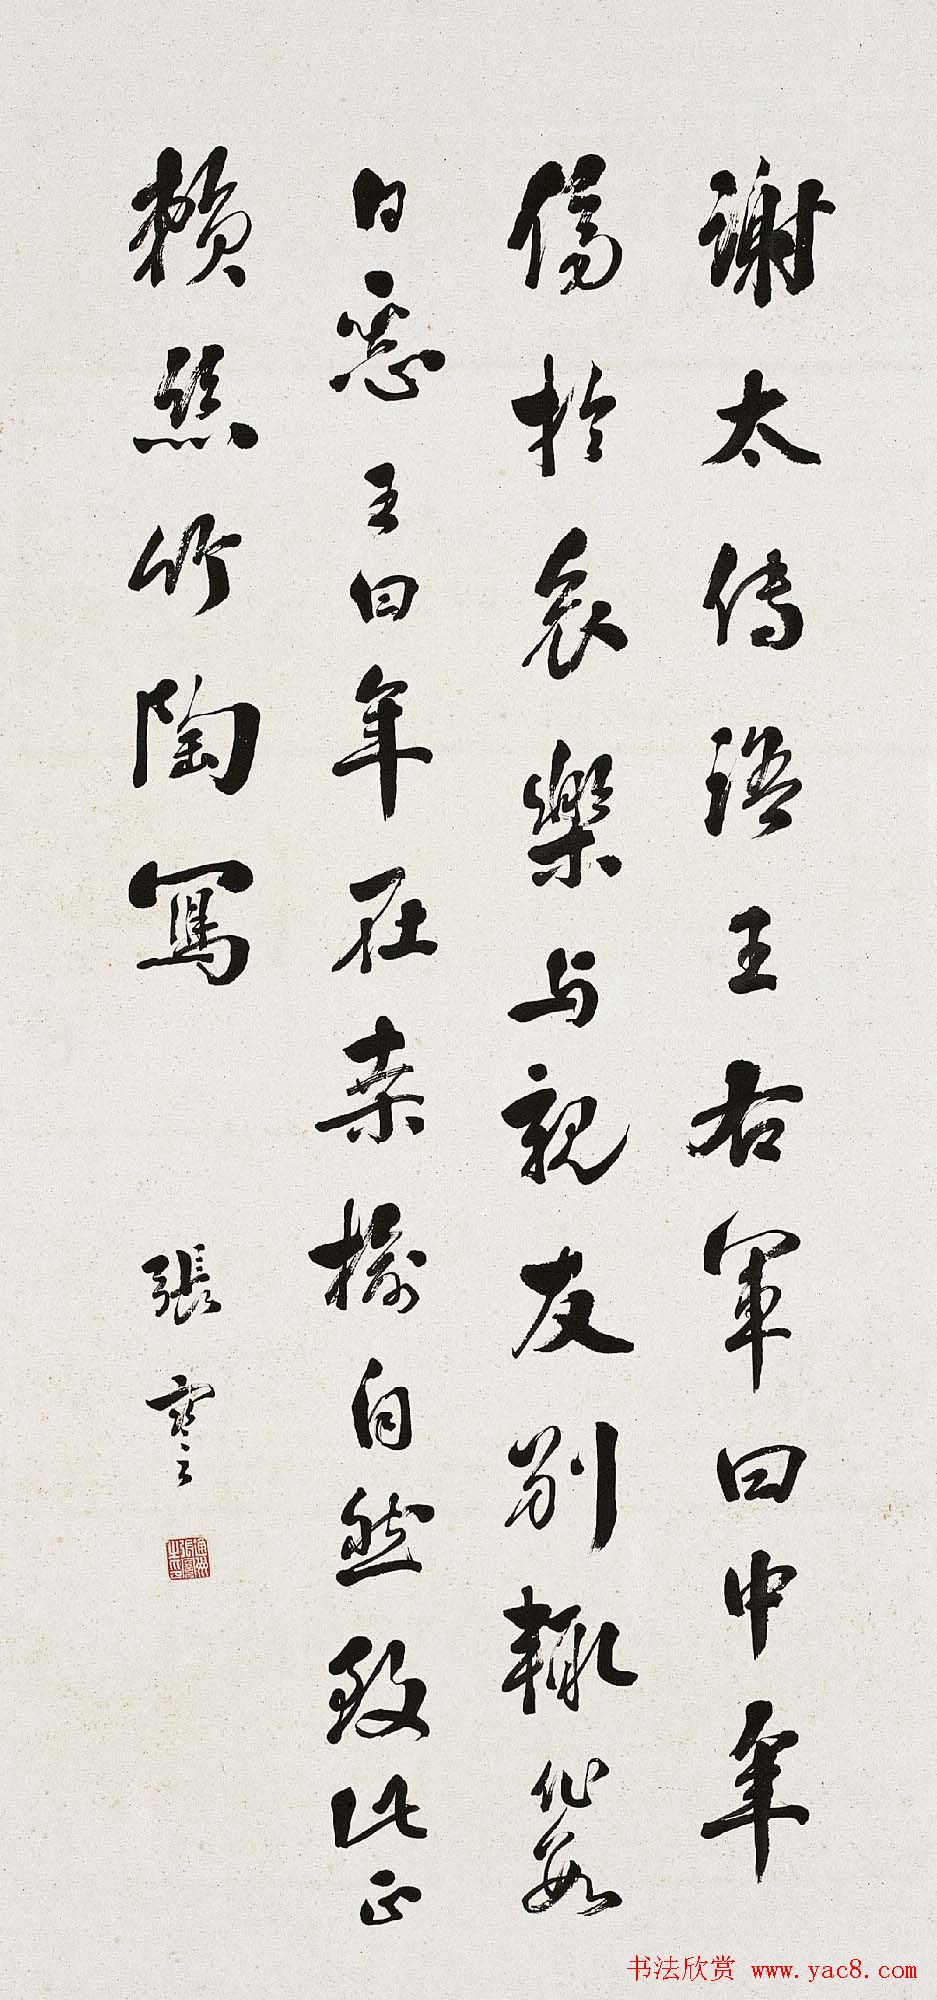 謝太傅語王右軍曰中年
傷於哀樂与親友別輒作數
日惡王曰年在桑榆自然致此正
賴絲竹陶寫
張謇
书法欣赏 www.yac8.com